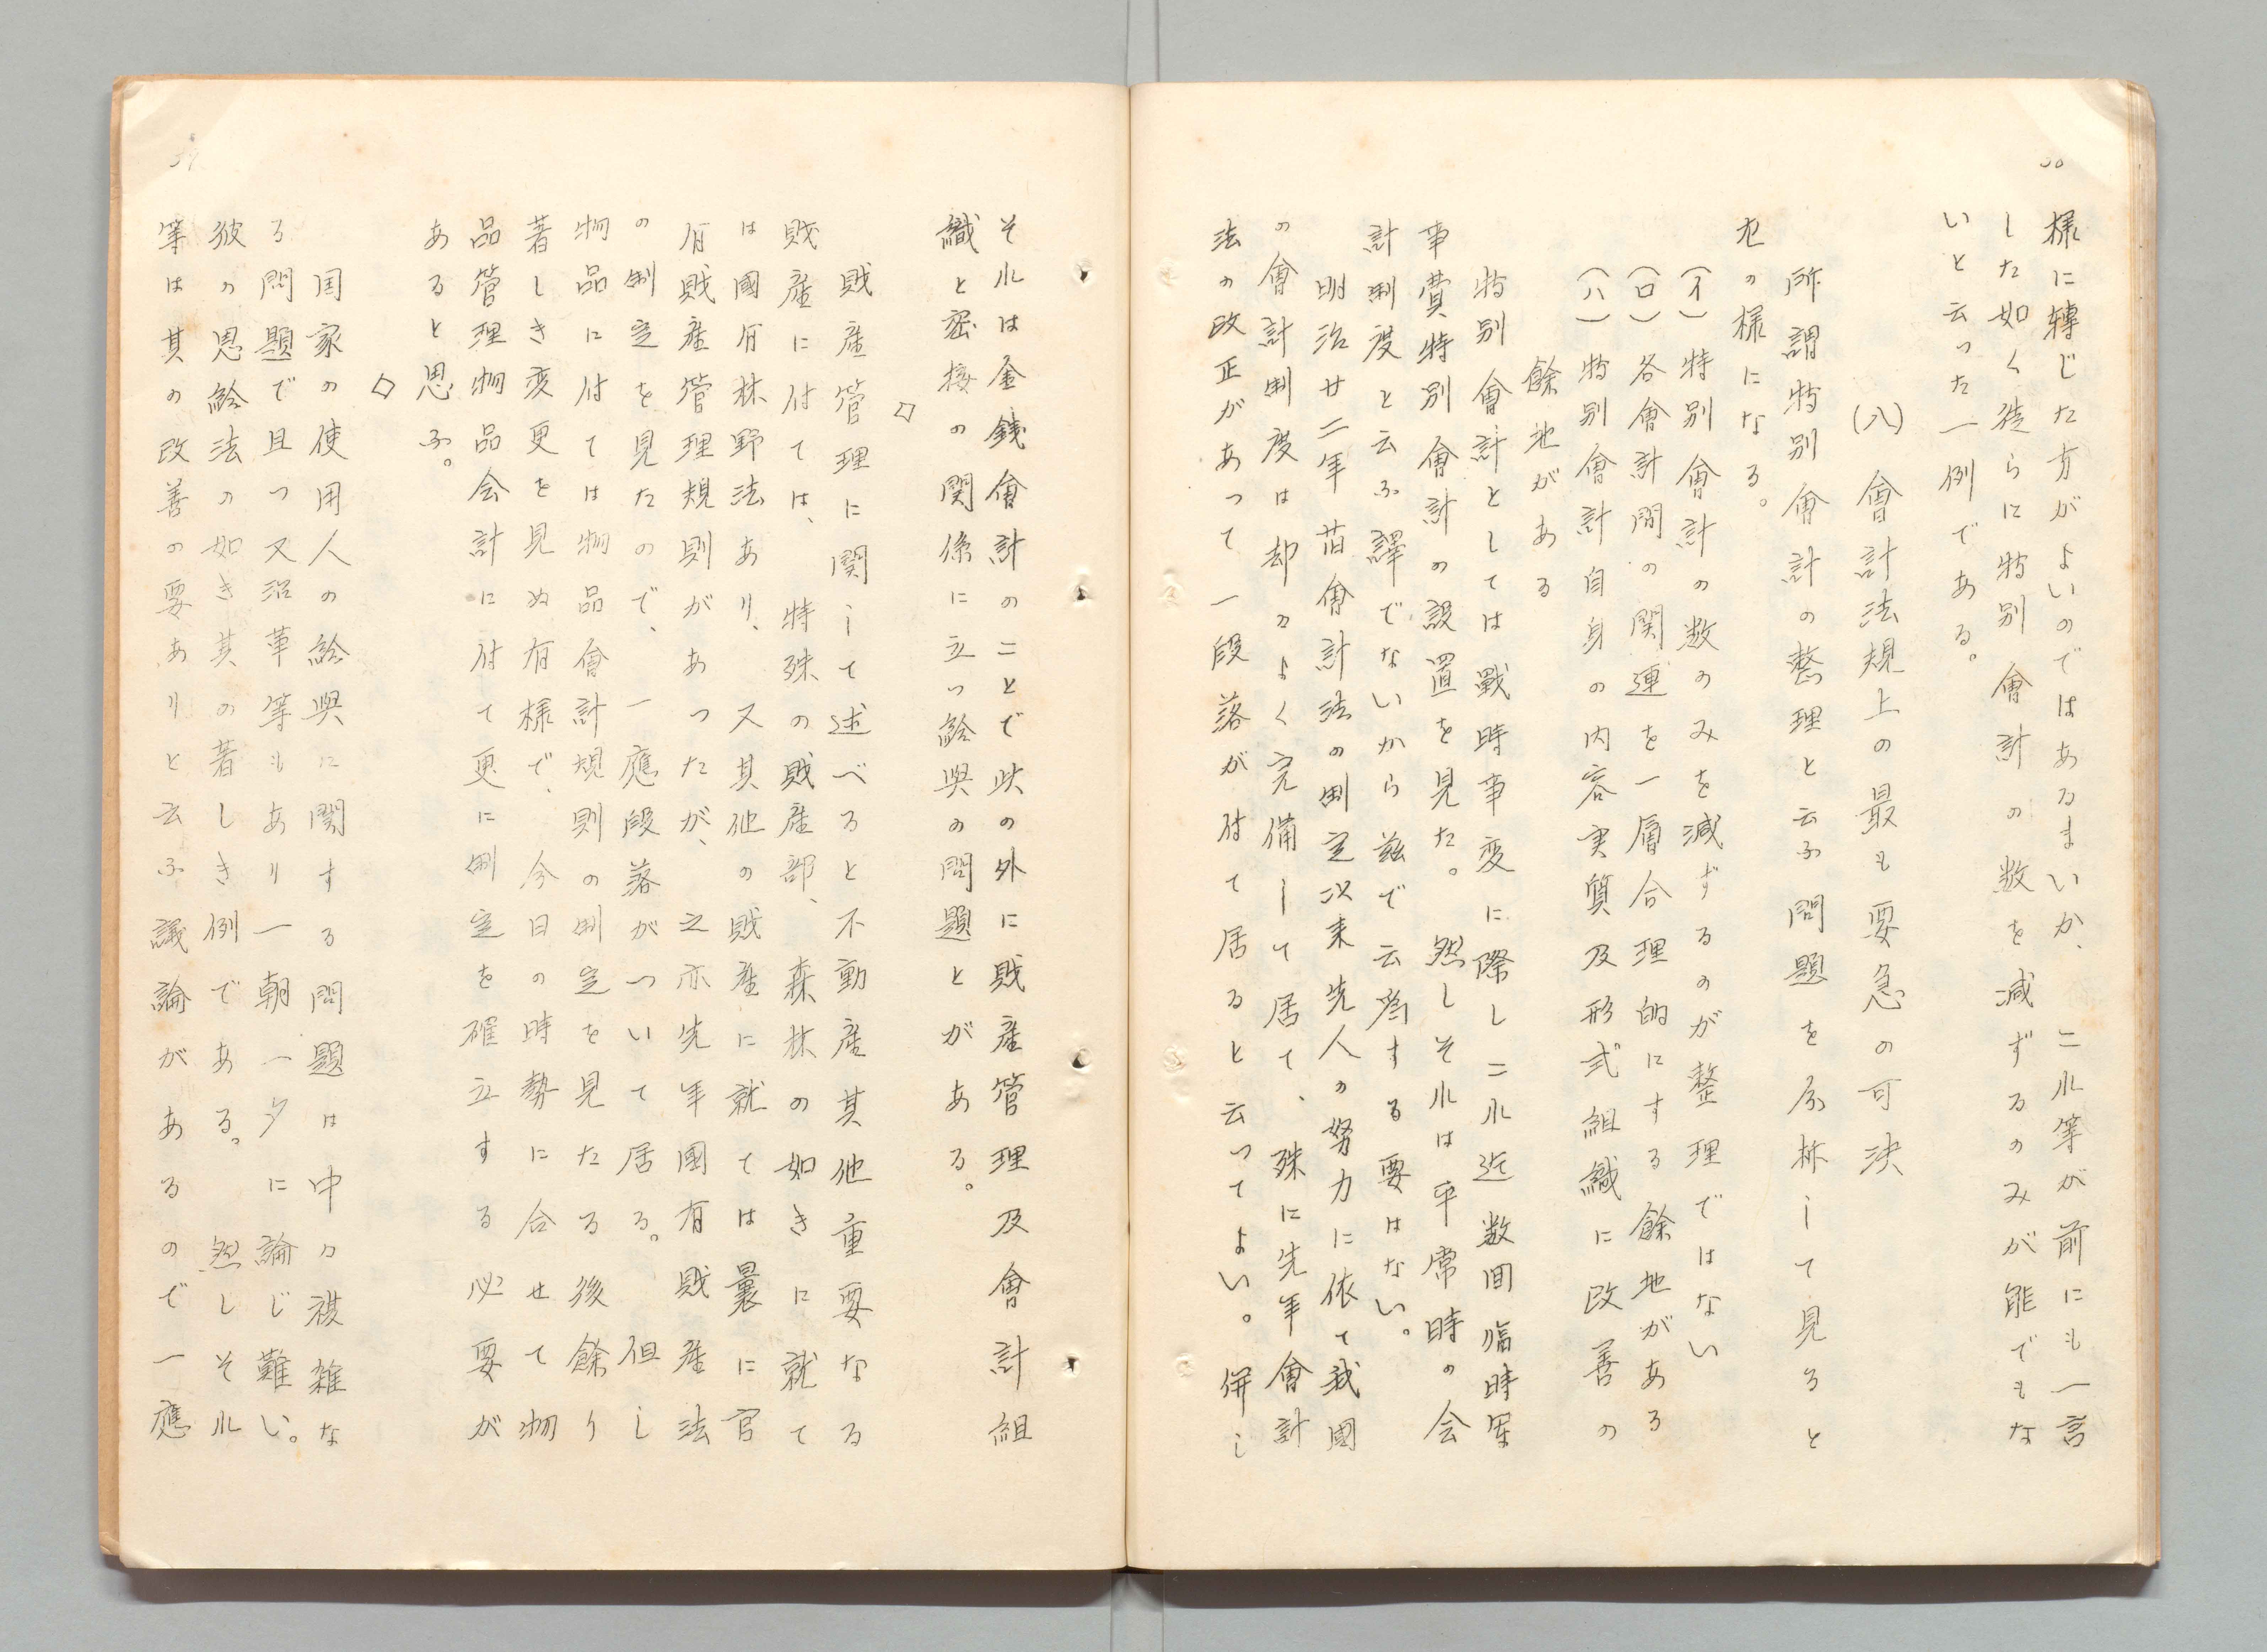 様に轉じた方がよいのではあるまいか、これ等が前にも一言
した如く徒らに特別會計の数を減ずるのみが能でもな
いと云った一例である。
(八) 會計法規上の最も要急の可決
所謂特別會計の整理と云ふ問題を分柝して見ると
左の様になる。
(イ)特別會計の数のみを減ずるのが整理ではない
(ロ)各會計間の関連を一層合理的にする餘地がある
(ハ)特別會計自身の内容実質及形式組織に改善の
餘地がある
特別會計としては戰時事変に際しこれ近数回臨時軍
事費特別會計の設置を見た。然しそれは平常時の会
計制度と云ふ譯でないから茲で云為する要はない。
明治廿二年旧會計法の制定以来先人の努力に依て我國
の會計制度は却々よく完備して居て、殊に先年會計
法の改正があって一段落が付て居ると云ってよい。併し
それは金錢會計のことで此の外に財産管理及會計組
織と密接の関係に立つ給與の問題とがある。
◇
財産管理に関して述べると不動産其他重要なる
財産に付ては、特殊の財産部、森林の如きに就て
は國有林野法あり、又其他の財産に就ては曩に官
有財産管理規則があつたが、之亦先年國有財産法
の制定を見たので、一應段落がついて居る。但し
物品に付ては物品會計規則の制定を見たる後餘り
著しき変更を見ぬ有様で、今日の時勢に合せて物
品管理物品会計に付て更に制定を確立する必要が
あると思ふ。
◇
国家の使用人の給與に関する問題は中々複雑な
る問題で且つ又沿革等もあり一朝一夕に論じ難い。
彼の恩給法の如き其の著しき例である。然しそれ
等は其の改善の要ありと云ふ議論があるので一應